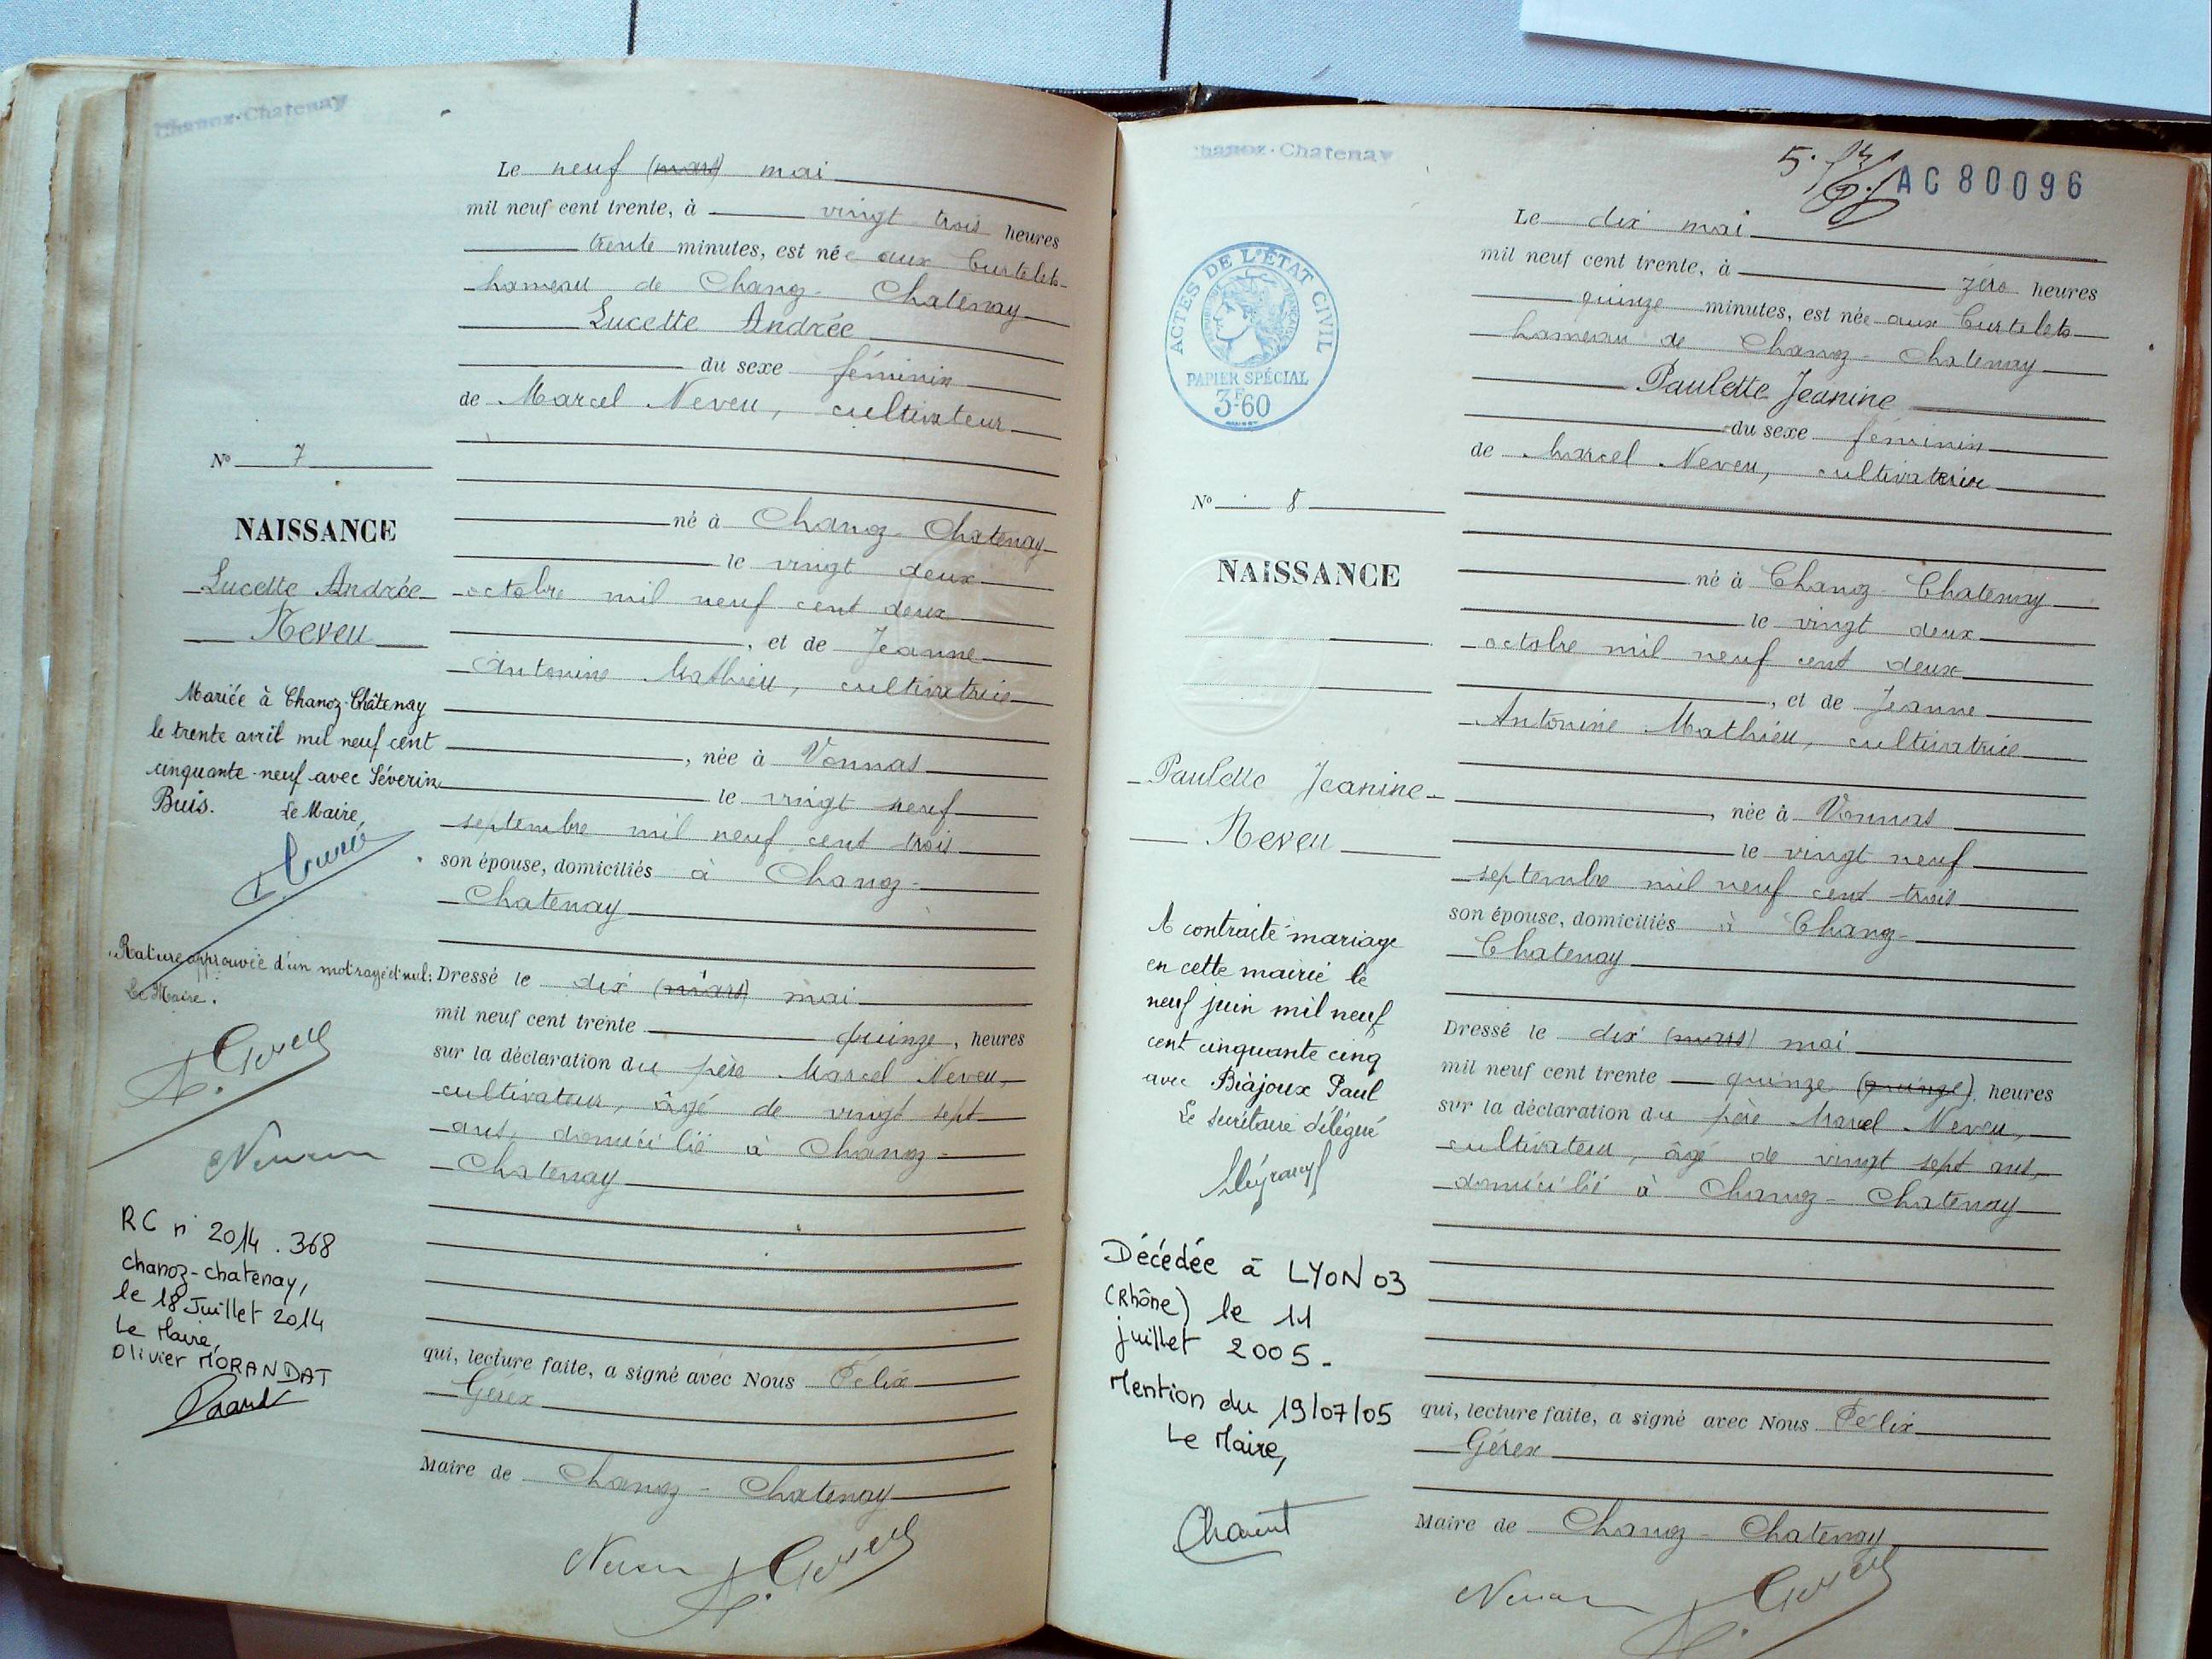 Chanoz-Chatenay
Le neuf (mars) mai
mil neuf cent trente, à vingt trois heures
trente minutes, est née aux Curtelets
hameau de Chanoz-Chatenay
Lucette Andrée
du sexe féminin
de Marcel Neveu, cultivateur
né à Chanoz-Chatenay
le vingt deux
octobre mil neuf cent deux
, et de Jeanne
Antonine Mathieu, cultivatrice
, née à Vonnas
le vingt neuf
septembre mil neuf cent trois
son épouse, domiciliés à Chanoz-
Chatenay
Dressé le dix (mars) mai
mil neuf cent trente quinze, heures
sur la déclaration du père Marcel Neveu,
cultivateur, âgé de vingt sept
ans, domicilié à Chanoz-
Chatenay
qui, lecture faite, a signé avec Nous Félix
Gérex
Maire de Chanoz-Chatenay
N° 7
NAISSANCE
Lucette Andrée
Neveu
Mariée à Chanoz-Châtenay
le trente avril mil neuf cent
cinquante-neuf avec Séverin
Buis. Le Maire,
Rature approuvée d'un mot rayé et nul:
Le Maire.
RC n° 2014.368
Chanoz-Chatenay,
le 18 Juillet 2014
Le Maire,
Olivier MORANDAT
Chanoz-Chatenay
5.
AC80096
ACTES DE L'ÉTAT CIVIL
PAPIER SPÉCIAL
3F60
Le dix mai
mil neuf cent trente, à zéro heures
quinze minutes, est née aux Curtelets
hameau de Chanoz-Chatenay
Paulette Jeanine
du sexe féminin
de Marcel Neveu, cultivateur
né à Chanoz-Chatenay
le vingt deux
octobre mil neuf cent deux
, et de Jeanne
Antonine Mathieu, cultivatrice
, née à Vonnas
le vingt neuf
septembre mil neuf cent trois
son épouse, domiciliés à Chanoz-
Chatenay
Dressé le dix (mars) mai
mil neuf cent trente quinze (quinze), heures
sur la déclaration du père Marcel Neveu,
cultivateur, âgé de vingt sept ans,
domicilié à Chanoz-Chatenay
qui, lecture faite, a signé avec Nous Félix
Gérex
Maire de Chanoz-Chatenay
N° 8
NAISSANCE
Paulette Jeanine
Neveu
A contracté mariage
en cette mairie le
neuf juin mil neuf
cent cinquante cinq
avec Biajoux Paul
Le secrétaire délégué
Décédée à LYON 03
(Rhône) le 11
juillet 2005-
Mention du 19/07/05
Le Maire,